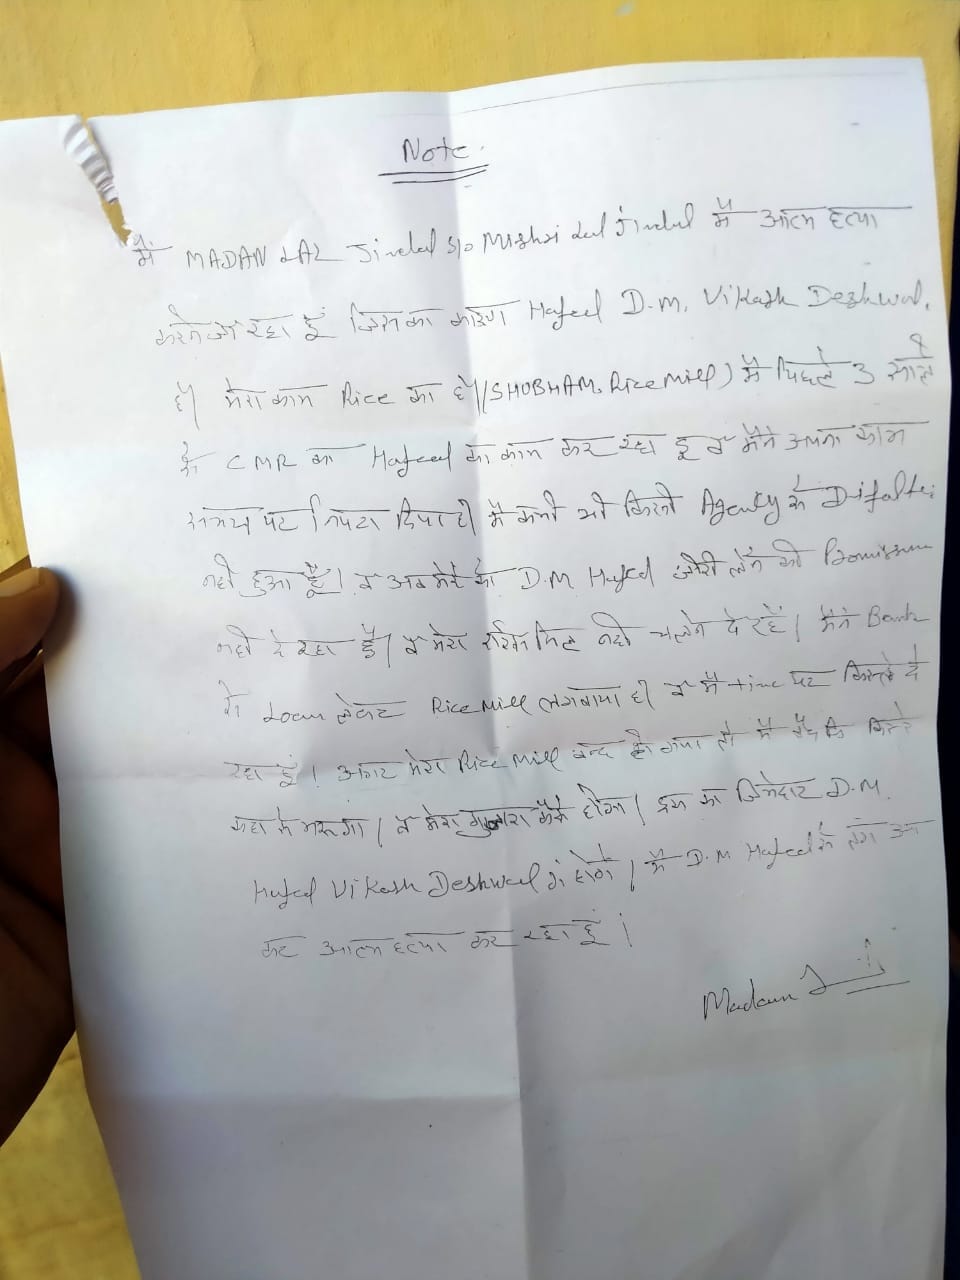 Note.
मैं MADAN LAL Jindal S/o Mishri Lal Jindal मैं आत्म हत्या
करने जा रहा हूं जिस का कारण Hafed D.M. Vikash Deshwal.
है। मेरा काम Rice का है।(SHOBHAM. Rice Mill) मैं पिछले 3 सालो
से CMR का Hafed का काम कर रहा हू व मैंने अपना काम
समय पर निपटा दिया है। मैं कभी भी किसी Agency से Difalter
नही हुआ हूँ। व अब मेरे को D.M Hafed जीरी लेने की
नही दे रहा है। व मेरा राईस मिल नही चलने दे रहे। मैंने Bank
से Loan लेकर Rice Mill लगवाया है। व मैं time पर किस्ते दे
रहा हूं। अगर मेरा Rice Mill बन्द हो गया तो मैं बैंक कि किस्ते
कहा से भरूगा। व मेरा गुजारा कैसे होगा। इस का जिमेदार D.M.
Hafed Vikash Deshwal जी होगे। मैं D.M Hafed से तंग आ
कर आत्म हत्या कर रहा हूं।
Madan